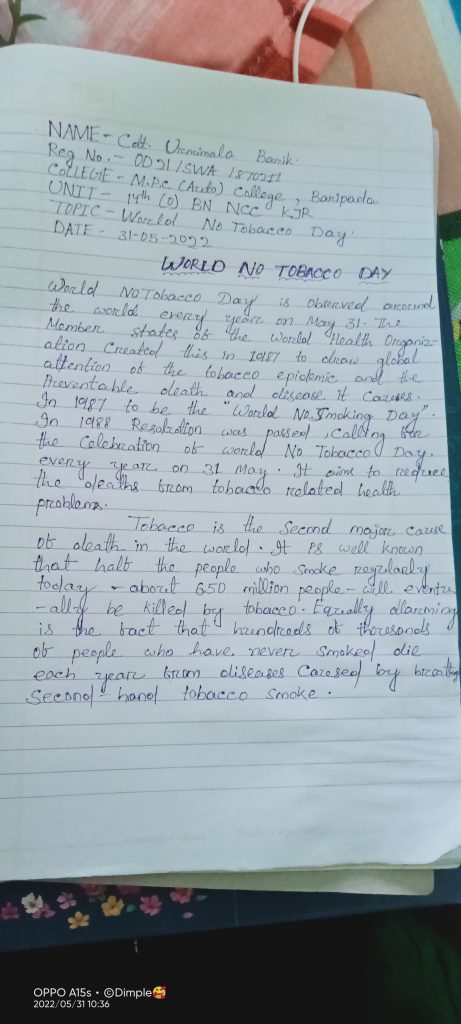 NAME - Cdt. Urmimala Barik.
Reg No. - OD21/SWA/870211
COLLEGE - M.P.C (Auto) College, Baripada
UNIT - 14th (O) BN NCC KJR
TOPIC - World No Tobacco Day.
DATE - 31-05-2022
WORLD NO TOBACCO DAY
World NO Tobacco Day is observed around
the world every year on May 31. The
Member states of the World Health Organiz-
ation Created this in 1987 to draw global
attention of the tobacco epidemic and the
Preventable death and disease it Causes.
In 1987 to be the "World No Smoking Day".
In 1988 Resolution was passed, calling for
the Celebration of world No Tobacco Day,
every year on 31 May. It aims to reduce
the deaths from tobacco related health
problems.
Tobacco is the Second major cause
of death in the world. It is well known
that half the people who smoke regularly
today - about 650 million people - will eventu
-ally be killed by tobacco. Equally alarming
is the fact that hundreds of thousands
of people who have never smoked die
each year from diseases Caused by breathing
Second-hand tobacco smoke.
OPPO A15s • ©Dimple🥰
2022/05/31 10:36